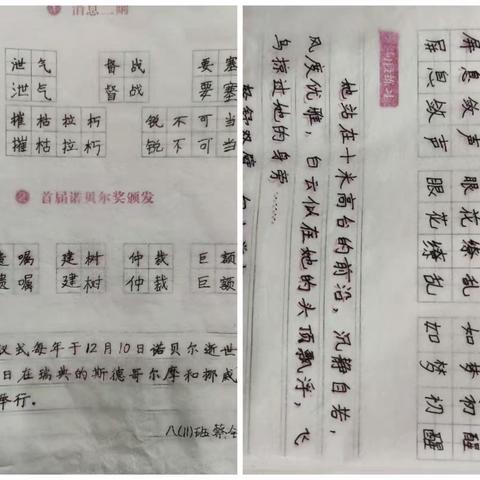 ① 消息二则
泄气 督战 要塞
泄气 督战 要塞
摧枯拉朽 锐不可当
摧枯拉朽 锐不可当
② 首届诺贝尔奖颁发
遗嘱 建树 仲裁 巨额
遗嘱 建树 仲裁 巨额
仪式每年于12月10日诺贝尔逝世
日在瑞典的斯德哥尔摩和挪威
举行。
八(11)班 蔡
屏息敛声 眼花缭乱 如梦初醒
屏息敛声 眼花缭乱 如梦初醒
她站在十米高台的前沿，沉静自若，
风度优雅，白云似在她的头顶飘浮，飞
鸟掠过她的身旁